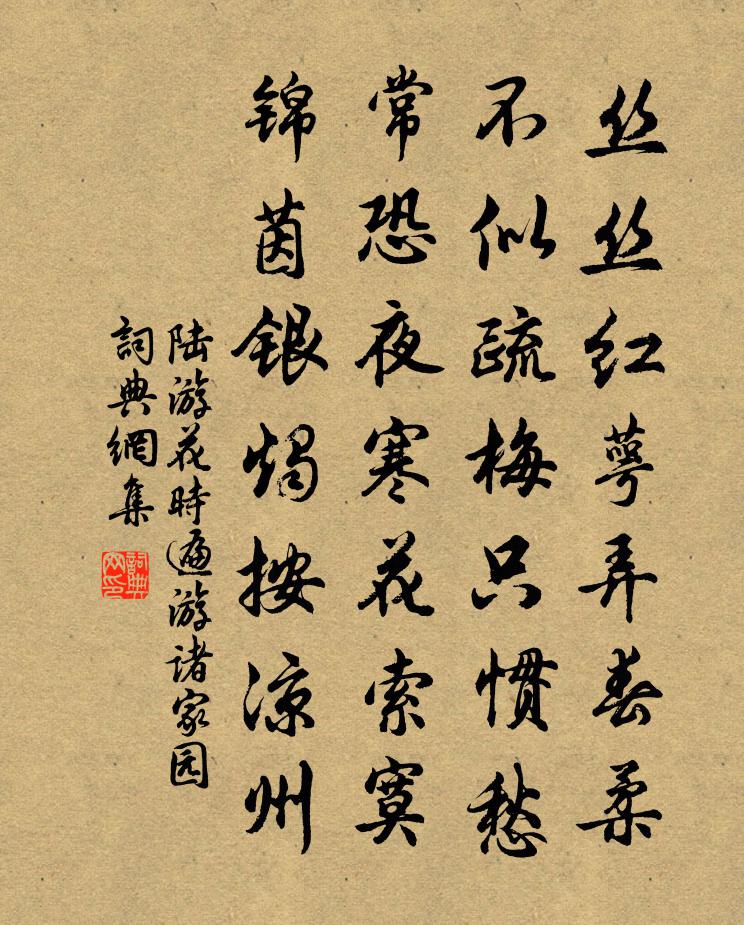 丝丝红萼弄春柔
不似疏梅只惯愁
常恐夜寒花索寞
锦茵银烛按凉州
陆游花时遍游诸家园
詞典網集
詞典网印